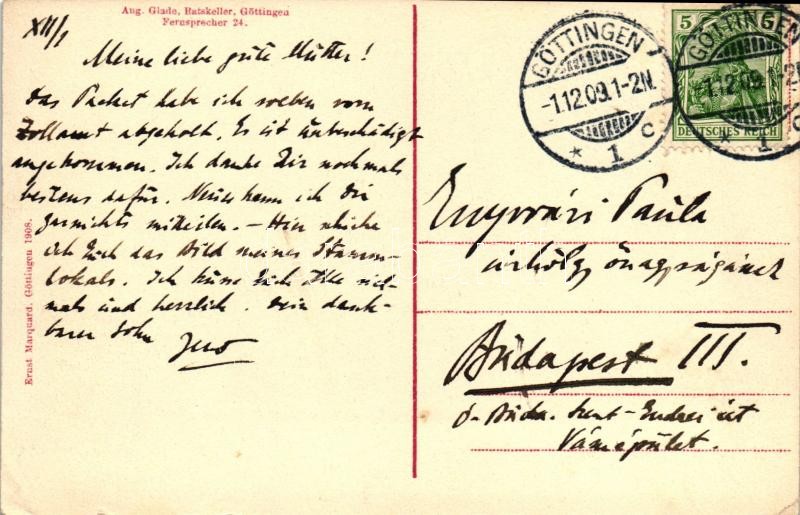 Aug. Glade, Ratskeller, Göttingen
Fernsprecher 24.
XII/1
Meine liebe gute Mutter!
Das Packet habe ich soeben vom
Zollamt abgeholt. Es ist unbeschädigt
angekommen. Ich danke Dir nochmals
bestens dafür. Neues kann ich Dir
garnichts mitteilen. – Hier schicke
ich Euch das Bild meines Stamm-
lokals. Ich küsse Euch Alle viel-
mals und herzlich. Dein dank-
barer Sohn
Jenő
Ernst Marquard, Göttingen 1908.
GÖTTINGEN
-1.12.09.1-2N.
* 1 c
5
DEUTSCHES REICH
GÖTTINGEN
-1.12.09.1-2N.
* 1 c
Paula
úrhölgy őnagyságának
Budapest III.
Ó-Buda. Szent-Endrei út
Vámépület.